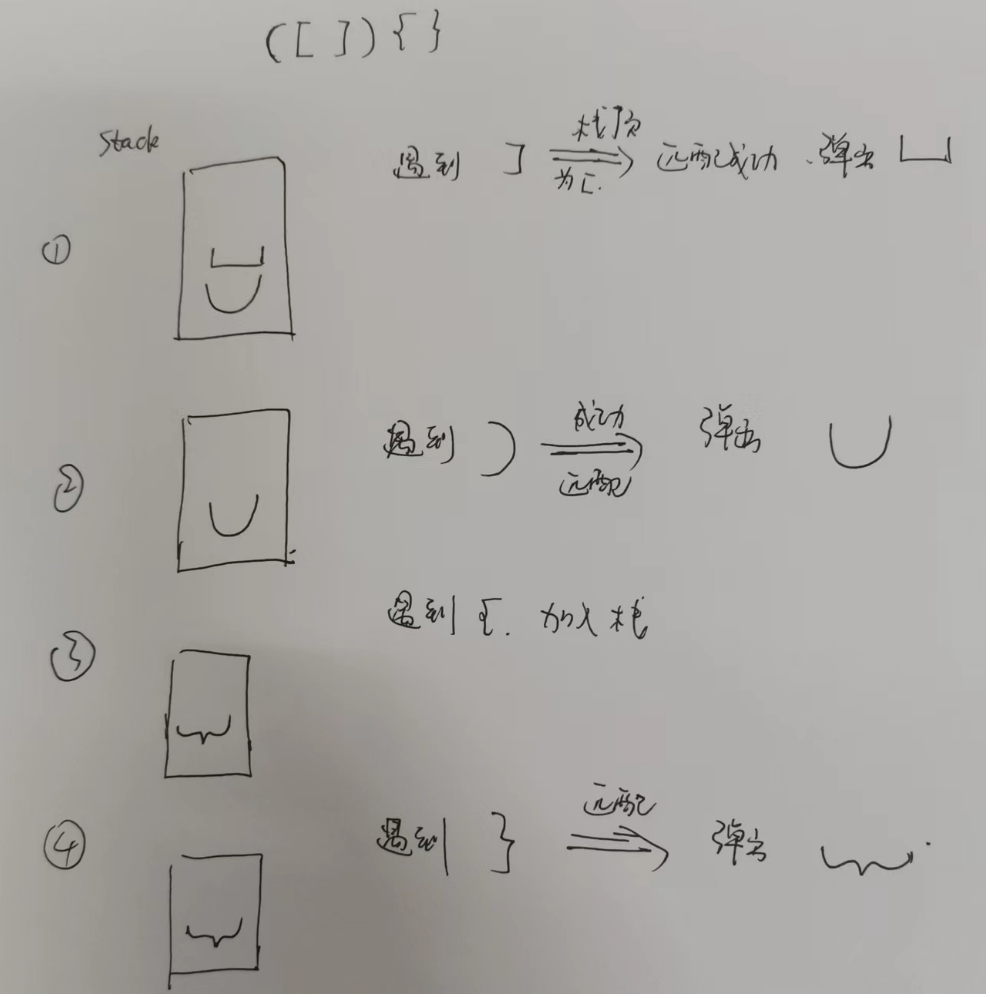 ([]){}
Stack
① 遇到 ] 栈顶为[. 匹配成功.弹出 [
② 遇到 ) 成功匹配 弹出 (
③ 遇到 {. 加入栈
④ 遇到 } 匹配 弹出 {.